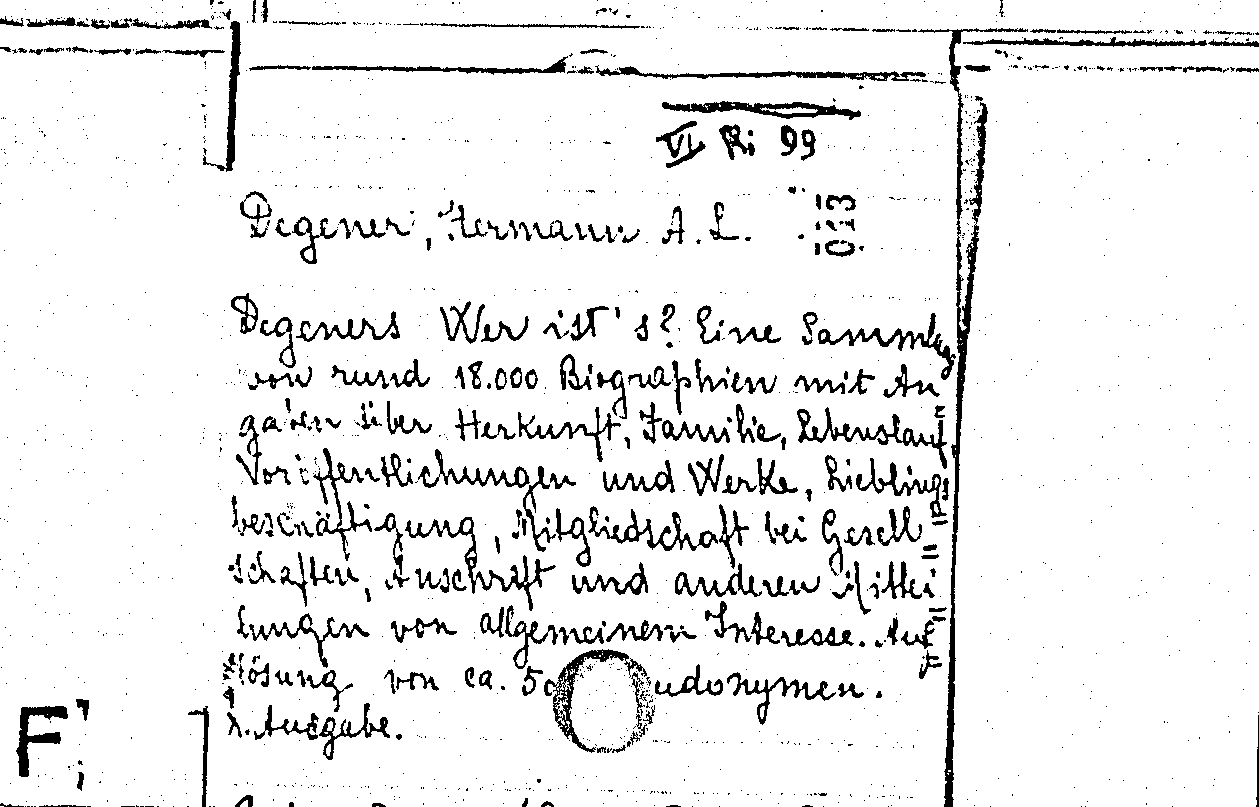 VI Ri 99
013
Degener, Hermann A. L.
Degeners Wer ist's? Eine Sammlung
von rund 18.000 Biographien mit An=
gaben über Herkunft, Familie, Lebenslauf,
Veröffentlichungen und Werke, Lieblings=
beschäftigung, Mitgliedschaft bei Gesell=
schaften, Anschrift und anderen Mittei=
lungen von allgemeinem Interesse. Auf=
lösung von ca. udonymen.
Ausgabe.
F